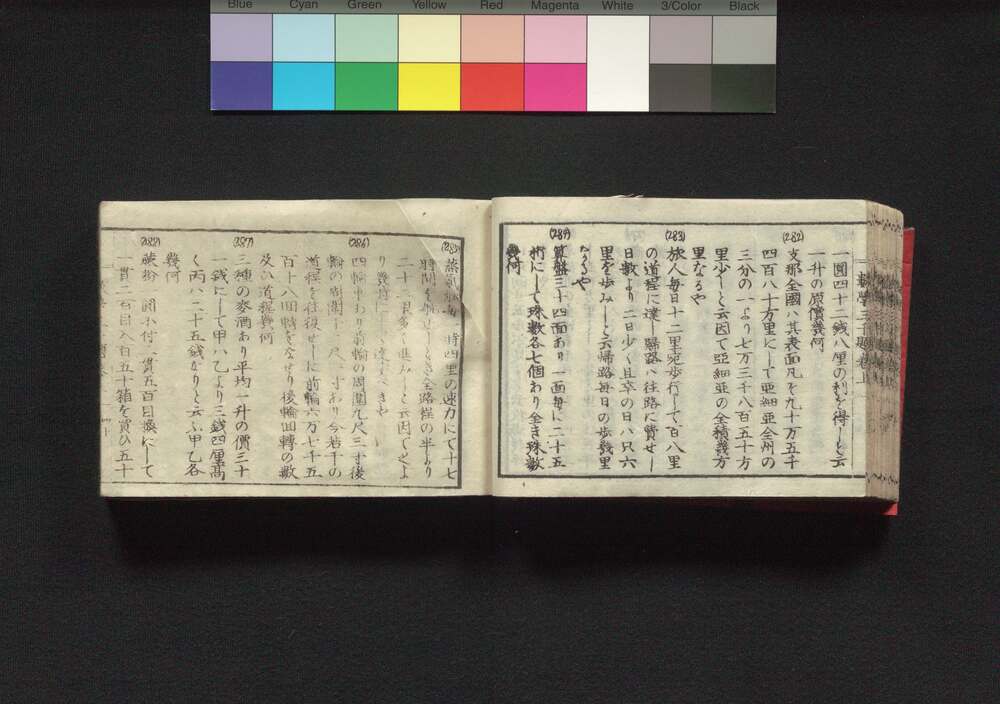 Blue Cyan Green Yellow Red Magenta White 3/Color Black
數學三千題卷上
一圓四十二錢八厘の利を得しと云
一升の原價幾何
(282)
支那全國ハ其表面凡そ九十万五千
四百八十方里にして亜細亜全州の
三分の一より七万三千八百五十方
里少しと云因て亜細亜の全積幾方
里なるや
(283)
旅人毎日十二里宛歩行して百八里
の道程に達し歸路ハ往路に費せし
日數より二日少く且卒の日ハ只六
里を歩みしと云帰路毎日の歩幾里
なるや
(284)
算盤三十四面あり一面毎に二十五
桁にして珠數各七個あり全き珠數
幾何
(285)
蒸氣 時四里の速力にて十七
時間を せしときハ全路程の半より
二十二里多く進みしと云因てもよ
り幾時
(286)
四輪車あり前輪の周圍九尺三寸後
輪の周圍 尺 寸あり今若干の
道程を往復せしに前輪六万七千五
百十八回轉をなせり後輪回轉の數
及ひ道程幾何
(287)
三種の麥酒あり平均一升の價三十
一錢にして甲ハ乙より三錢四厘高
く丙ハ二十五錢なりと云ふ甲乙各
幾何
(288)
一貫五百目 にして
一貫二百目八百五十箱を買ひ五十